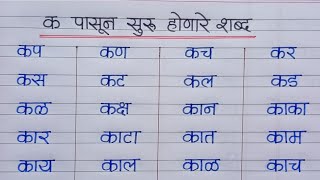 क पासून सुरू होणारे शब्द
कप कण कच कर
कस कट कल कड
कळ कक्ष कान काका
कार काटा कात काम
काय काल काळ काच